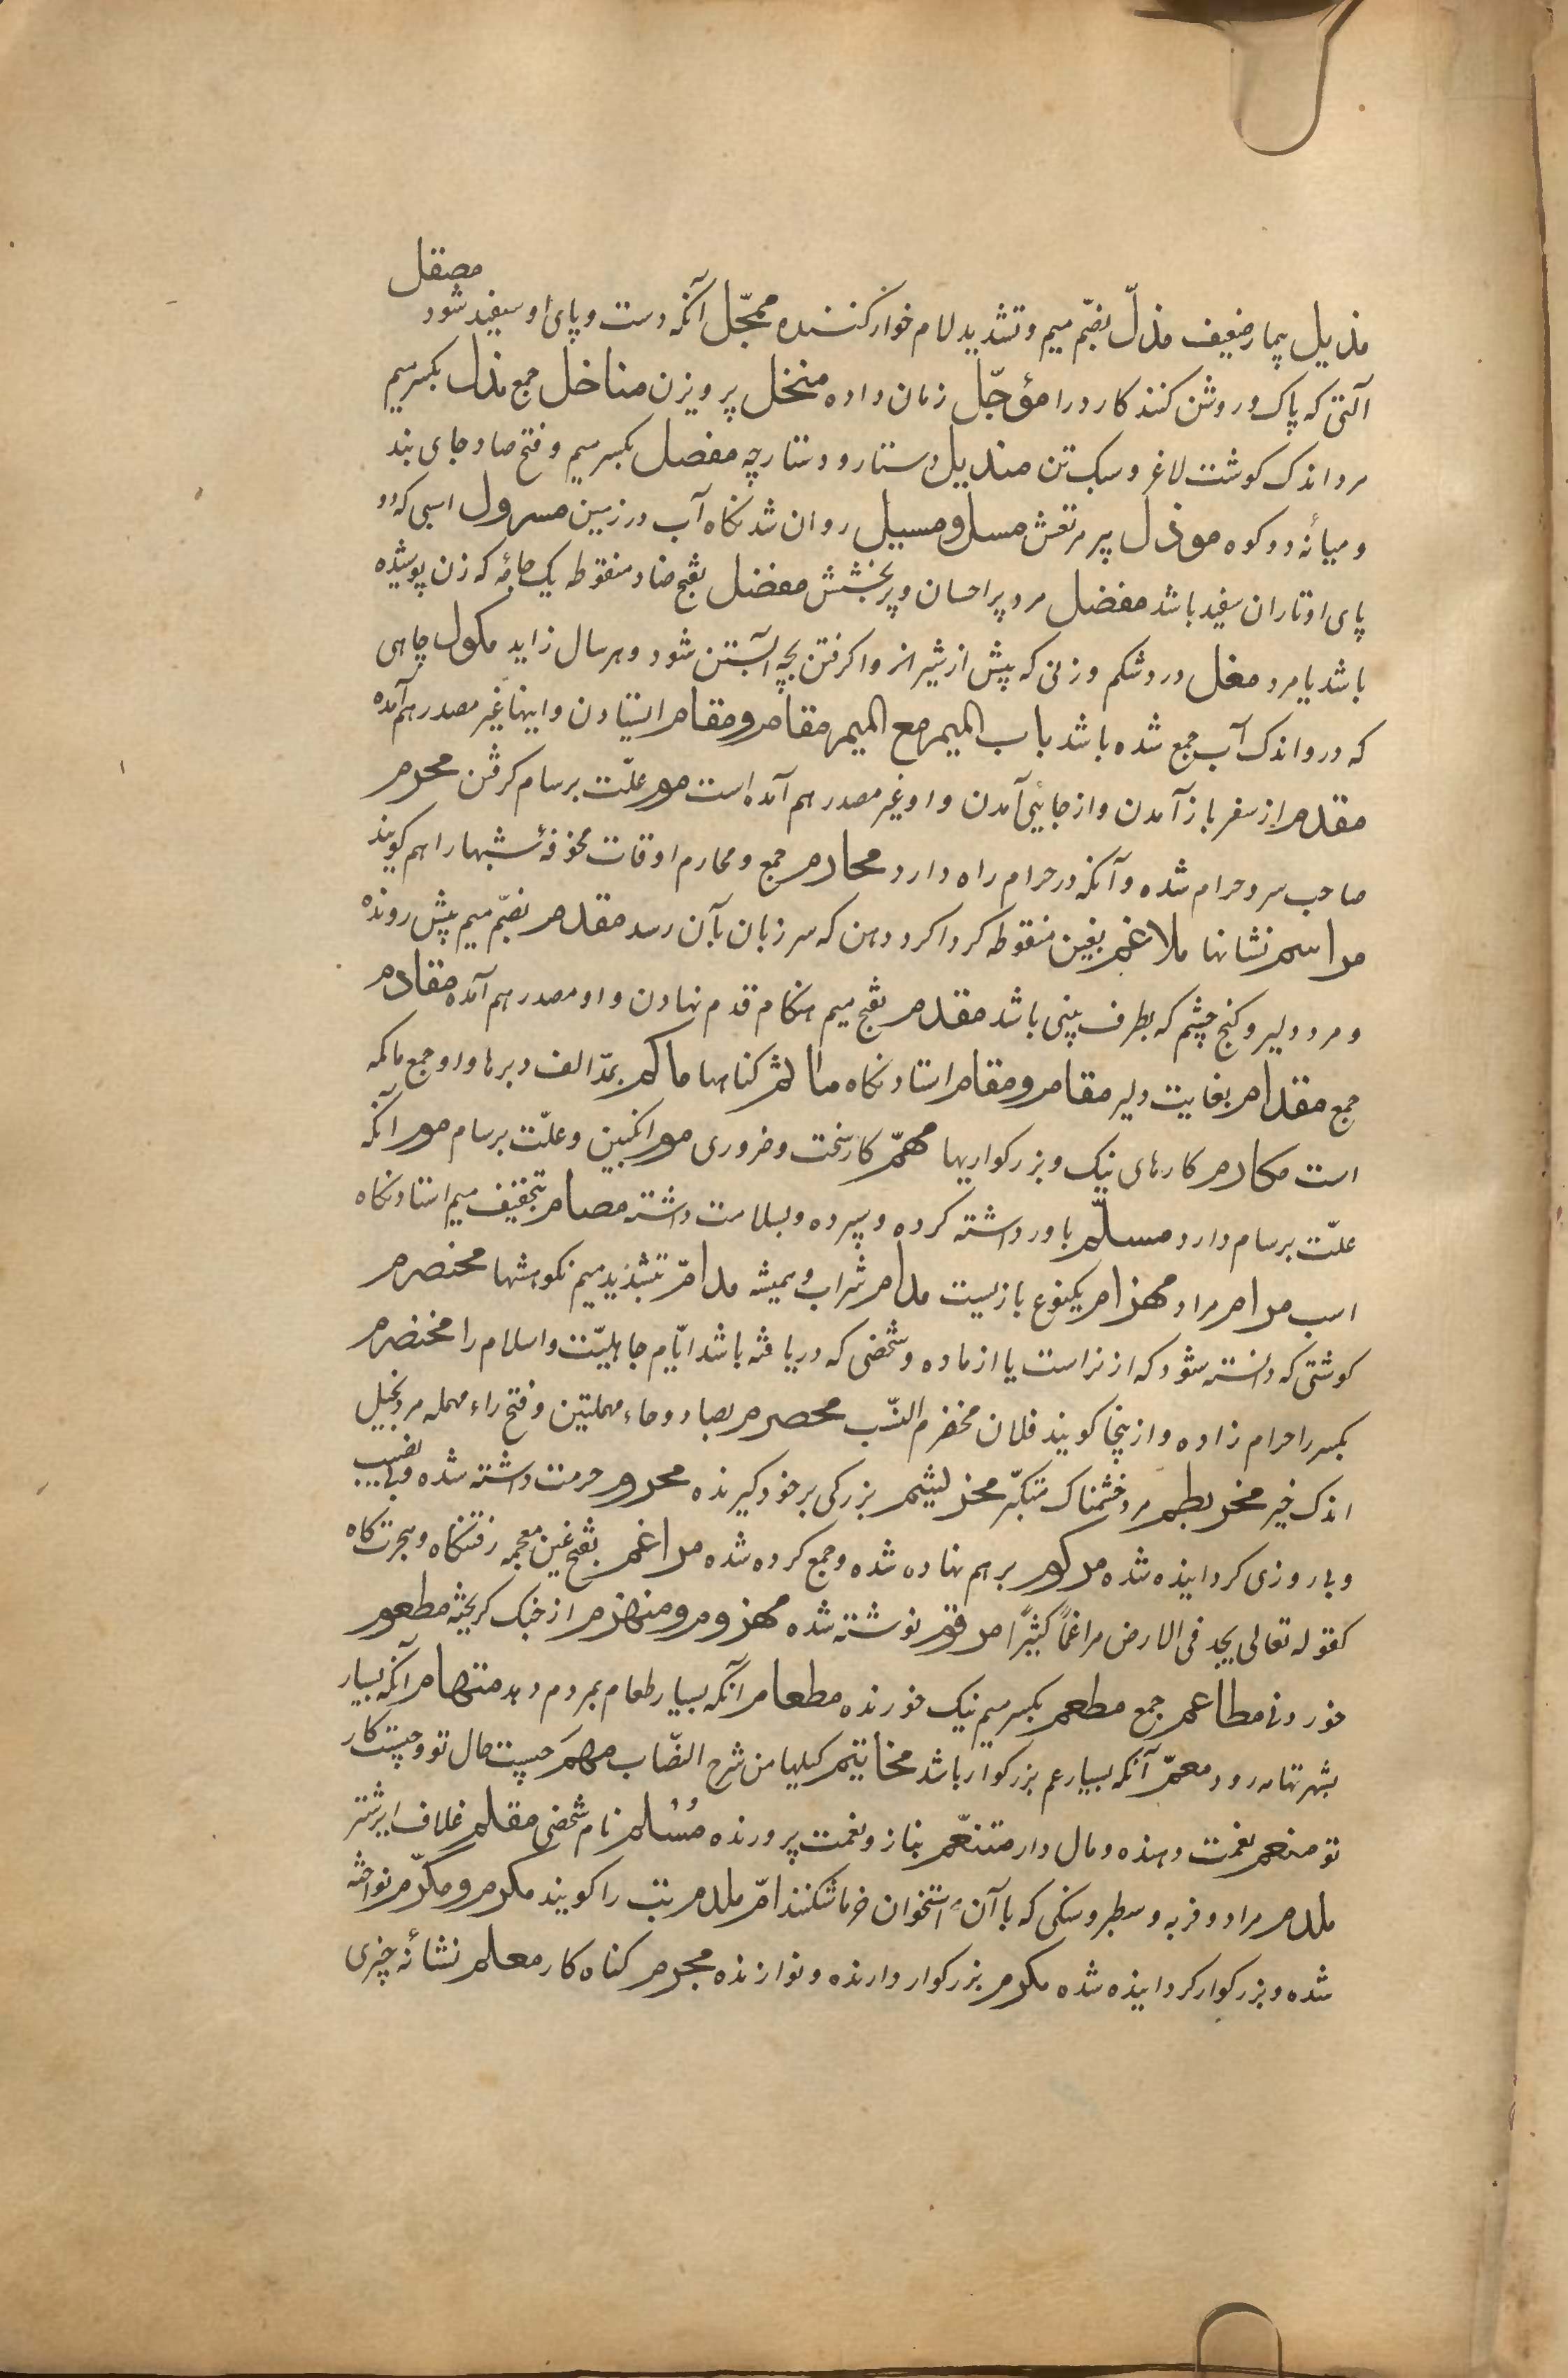 مصقل
مذیل بیمار ضعیف مذلّ بضمّ میم و تشدید لام خوار کننده محجّل آنکه دست و پای او سفید شود
آلتی که پاک و روشن کنند کارد را مؤجّل زمان داده منخل پرویزن مناخل جمع مذل بکسر میم
مرد اندک کوشت لاغر و سبک تن مندیل دستار و دستارچه مفصل بکسر میم و فتح صاد جای بند
و میانهٔ دو کوه موذل پیر مرتعش مسل و مسیل روان شدنکاه آب در زمین مسرول اسبی که دو
پای او تا ران سفید باشد مفضل مرد پر احسان و پر بخشش مفضل بفتح ضاد منقوطه یک جامه که زن پوشیده
باشد یا مرد مغل درد شکم و زنی که پیش از شیر از وا کرفتن بچه آبستن شود و هر سال زاید مکول چاهی
که درو اندک آب جمع شده باشد باب المیم مع المیم مقام و مقام ایستادن و اینها غیر مصدر هم آمده
مقدم از سفر باز آمدن و از جائی آمدن و او غیر مصدر هم آمده است موم علّت برسام کرفتن محرم
صاحب سر و حرام شده و آنکه در حرام راه دارد محارم جمع و محارم اوقات مخوفهٔ شبها را هم کویند
مراسم نشانها ملاغم بغین منقوطه کرداکرد دهن که سر زبان بآن رسد مقدم بضمّ میم پیش رونده
و مرد دلیر و کنج چشم که بطرف بینی باشد مقدم بفتح میم هنکام قدم نهادن و او مصدر هم آمده مقادم
جمع مقدام بغایت دلیر مقام و مقام استادنکاه مآثم کناهها مآکم بمدّ الف دبرها و او جمع ماکمه
است مکارم کارهای نیک و بزرکواریها مهمّ کار سخت و ضروری موم انکبین و علّت برسام موم آنکه
علّت برسام دارد مسلّم باور داشته کرده و سپرده و بسلامت داشته مصام بتخفیف میم استادنکاه
اسب مرام مراد مهزام یکنوع بازیست مدام شراب و همیشه مدامّ بتشدید میم نکوهشها مخضرم
کوشتی که دانسته نشود که از نر است یا از ماده و شخصی که دریافته باشد ایّام جاهلیّت و اسلام را مخضرم
بکسر را حرام زاده و از ینجا کویند فلان مخضرم النّسب محصرم بصاد و حاء مهملتین و فتح راء مهمله مرد بخیل
اندک خیر مخربطم مرد خشمناک متکبّر بزرکی بر خود کیرنده محروم حرمت داشته شده و بی نصیب
و بی روزی کردانیده شده مرکوم بر هم نهاده شده و جمع کرده شده مراغم بفتح غین معجمه رفتنکاه و هجرتکاه
کقوله تعالی یجد فی الارض مراغماً کثیرًا مرقوم نوشته شده مهزوم و منهزم از جنک کریخته مطعوم
خوردنی مطاعم جمع مطعم بکسر میم نیک خورنده مطعام آنکه بسیار طعام بمردم دهد متهام آنکه بسیار
بشهر تهامه رود معمّ آنکه بسیار عم بزرکوار باشد مخاتیم کیلها من شرح النّصاب مهیم چیست حال تو و چیست کار
تو منعم نعمت دهنده و مال دار متنعّم بناز و نعمت پرورنده مُسْلم نام شخصی مقلم غلاف ایر شتر
ملدم مراد و فربه و سطبر و سنکی که با آن استخوان خرما شکنند امّ ملدم تب را کویند مکرم و مکرّم نواخته
شده و بزرکوار کردانیده شده مکرم بزرکوار دارنده و نوازنده مجرم کناه کار معلم نشانهٔ چیزی